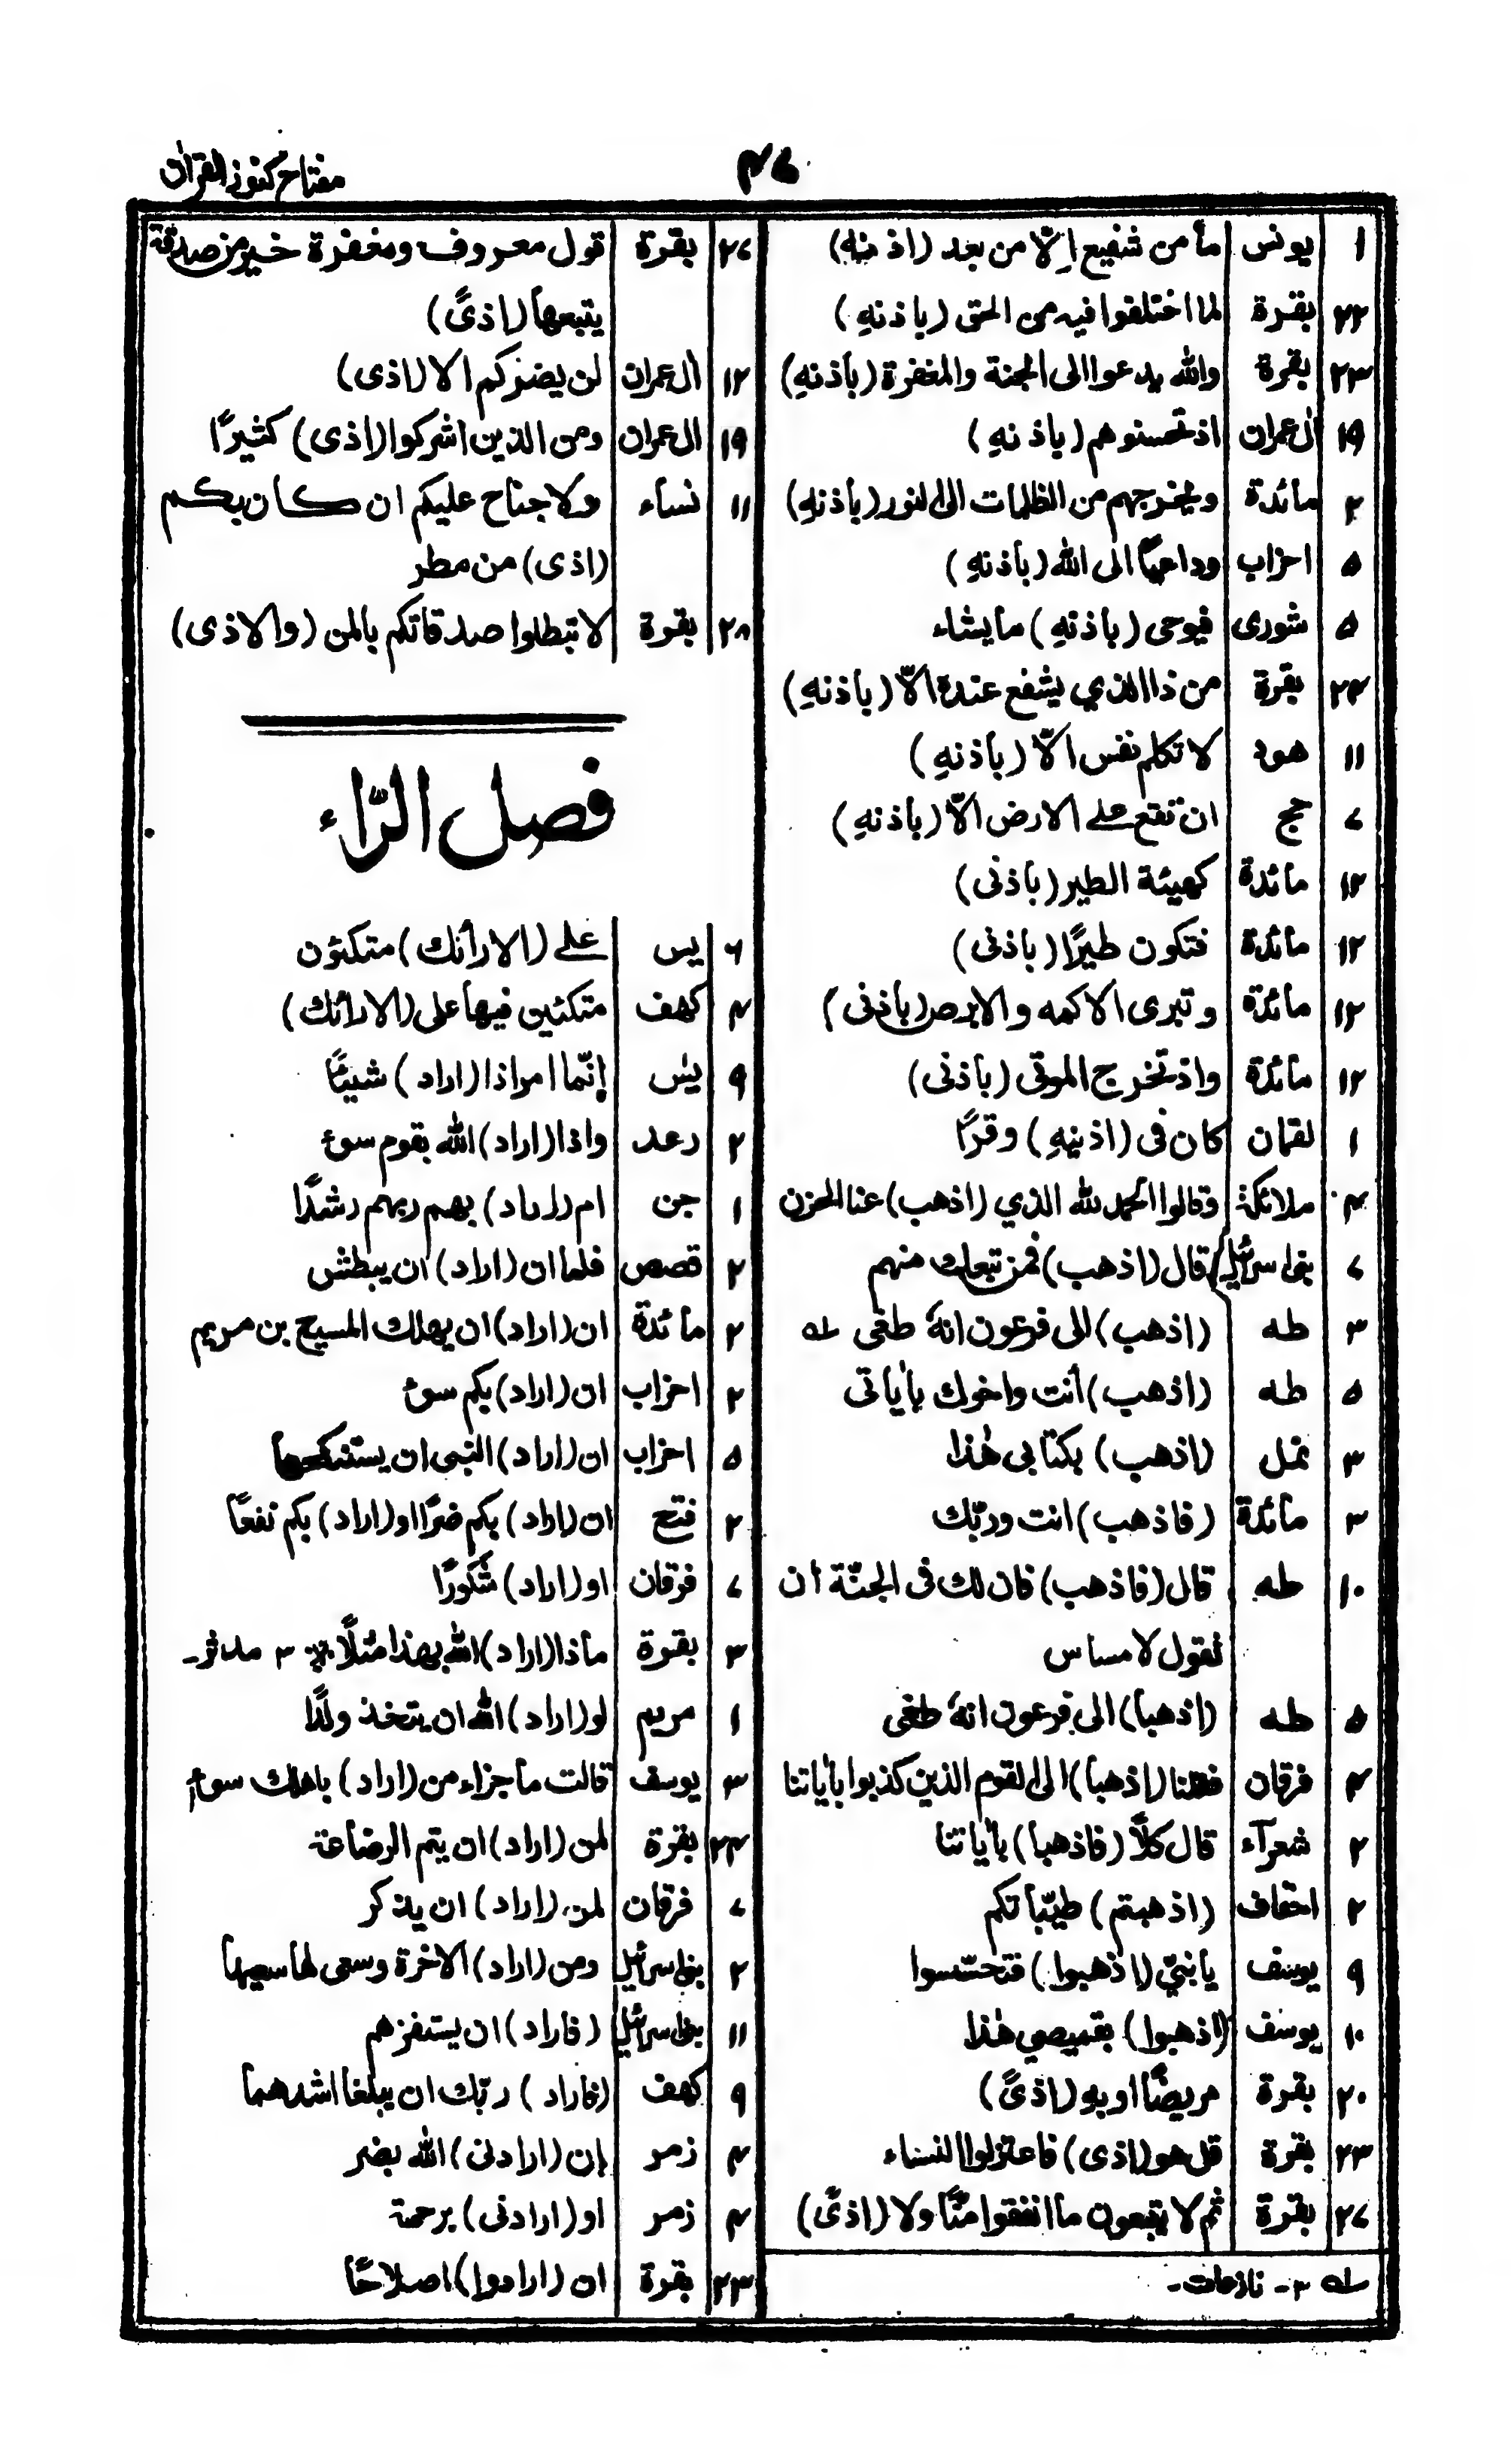 مفتاح كنوز القران
٤٧
١ يونس مأمن شفيع اِلّا من بعد (اذنهِ)
٢٢ بقرة لما اختلفوا فيه من الحق (باذنهِ)
٢٣ بقرة والله يدعوا الى الجنة والمغفرة (بأذنهِ)
١٩ اٰل عمران اذ تحسنوهم (باذنهِ)
٢ مائدة ويخرجهم من الظلمات الى النور (بأذنهِ)
٥ احزاب وداعيًا الى الله (بأذنهِ)
٥ شورى فيوحى (باذنهِ) ما يشاء
٢٤ بقرة من ذا الذي يشفع عندهٗ الّا (بأذنهِ)
١١ هود لا تكلم نفس الّا (بأذنهِ)
٧ حج ان تقع على الارض الّا (بأذنهِ)
١٢ مائدة كهيئة الطير (بأذنى)
١٢ مائدة فتكون طيرًا (باذنى)
١٢ مائدة وتبرى الاكمه والابرص (بأذنى)
١٢ مائدة واذ تخرج الموتى (بأذنى)
١ لقمان كان فى (اذنيهِ) وقرًا
٤ ملائكة وقالوا الحمد لله الذي (اذهب) عنا الحزن
٧ بنى اسرائيل قال (اذهب) فمن تبعك منهم
٣ طه (اذهب) الى فرعون انهٗ طغى ؎
٥ طه (اذهب) أنت واخوك بأياتى
٣ نمل (اذهب) بكتابى هٰذا
٣ مائدة (فاذهب) انت وربّك
١٠ طه قال (فاذهب) فان لك فى الجنّة أن
تقول لا مساس
٥ طه (اذهبأ) الى فرعون انهٗ طغى
٤ فرقان فقلنا (اذهبأ) الى القوم الذين كذبوا بأياتنا
٢ شعرآء قال كلّا (فاذهبأ) بأياتنا
٢ احقاف (اذهبتم) طيّبأتكم
٩ يوسف يا بنيّ (اذهبوا) فتحسّسوا
١٠ يوسف (اذهبوا) بقميصي هٰذا
٢٠ بقرة مريضًا او به (اذىً)
٢٣ بقرة قل هو (اذى) فاعتزلوا النساء
٢٧ بقرة ثم لا يتبعون ما انفقوا منًّا ولا (اذىً)
؎ ٣- نازعات-
٢٧ بقرة قول معروف ومغفرة خير من صدقة
يتبعهأ (اذىً)
١٢ اٰل عمران لن يضروكم الا (اذى)
١٩ ال عمران ومن الذين اشركوا (اذى) كثيرًا
١١ نساء ولا جناح عليكم ان كان بكم
(اذى) من مطر
٢٨ بقرة لا تبطلوا صدقاتكم بالمن (والاذى)
فصل الرّاء
٦ يس على (الارأئك) متكئون
٤ كهف متكئين فيهأ على (الارائك)
٩ يٰس إنّما امر اذا (اراد) شيئًا
٢ رعد واذا (اراد) الله بقوم سوء
١ جن ام (اراد) بهم ربهم رشدًا
٢ قصص فلما ان (اراد) ان يبطش
٢ مائدة ان (اراد) ان يهلك المسيح بن مريم
٢ احزاب ان (اراد) بكم سوء
٥ احزاب ان (اراد) النبى ان يستنكحها
٢ فتح ان (اراد) بكم ضرًا او (اراد) بكم نفعًا
٧ فرقان او (اراد) شُكورًا
٣ بقرة مأذا (اراد) الله بهذا مثلًا ٣ مدثر-
١ مريم لو (اراد) الله ان يتخذ ولدًا
٣ يوسف قالت مأ جزاء من (اراد) باهلك سوء
٢٤ بقرة لمن (اراد) ان يتم الرضاعة
٧ فرقان لمن (اراد) ان يذكر
٢ بنى اسرائيل ومن (اراد) الاخرة وسعى لها سعيها
١١ بنى اسرائيل (فاراد) ان يستفزهم
٩ كهف (فاراد) ربّك ان يبلغا اشدهما
٤ زمر إن (ارادنى) الله بضر
٤ زمر او (ارادنى) برحمة
٢٣ بقرة ان (ارادوا) اصلاحًا